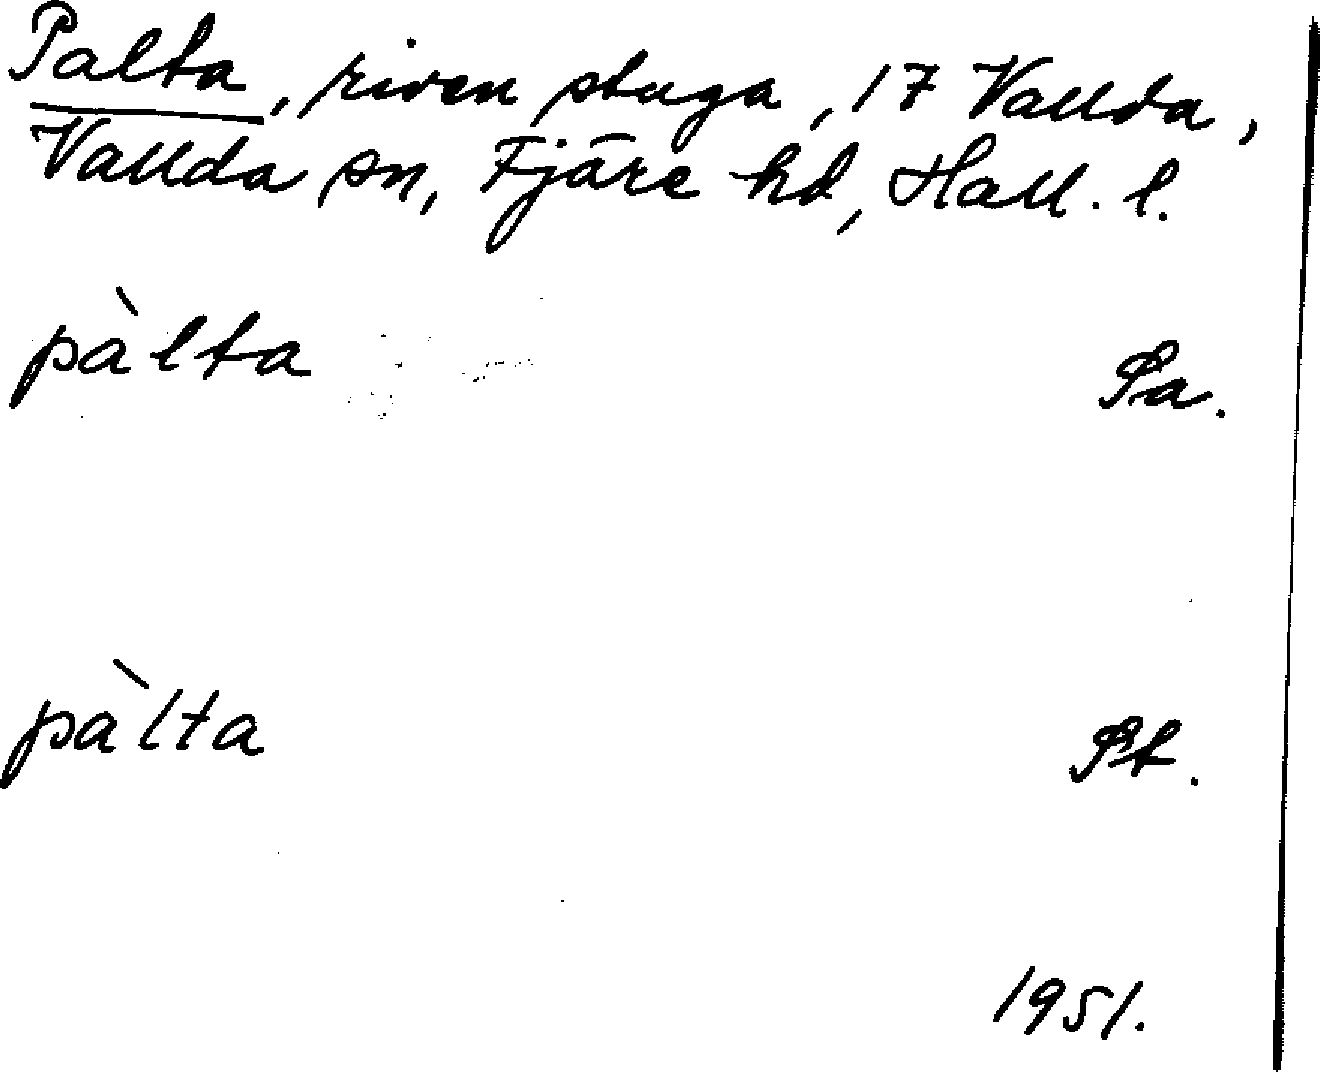 Palta, riven stuga, 17 Vallda,
Vallda sn, Fjäre hd, Hall. l.
pàlta Pa.
pàlta Pt.
1951.